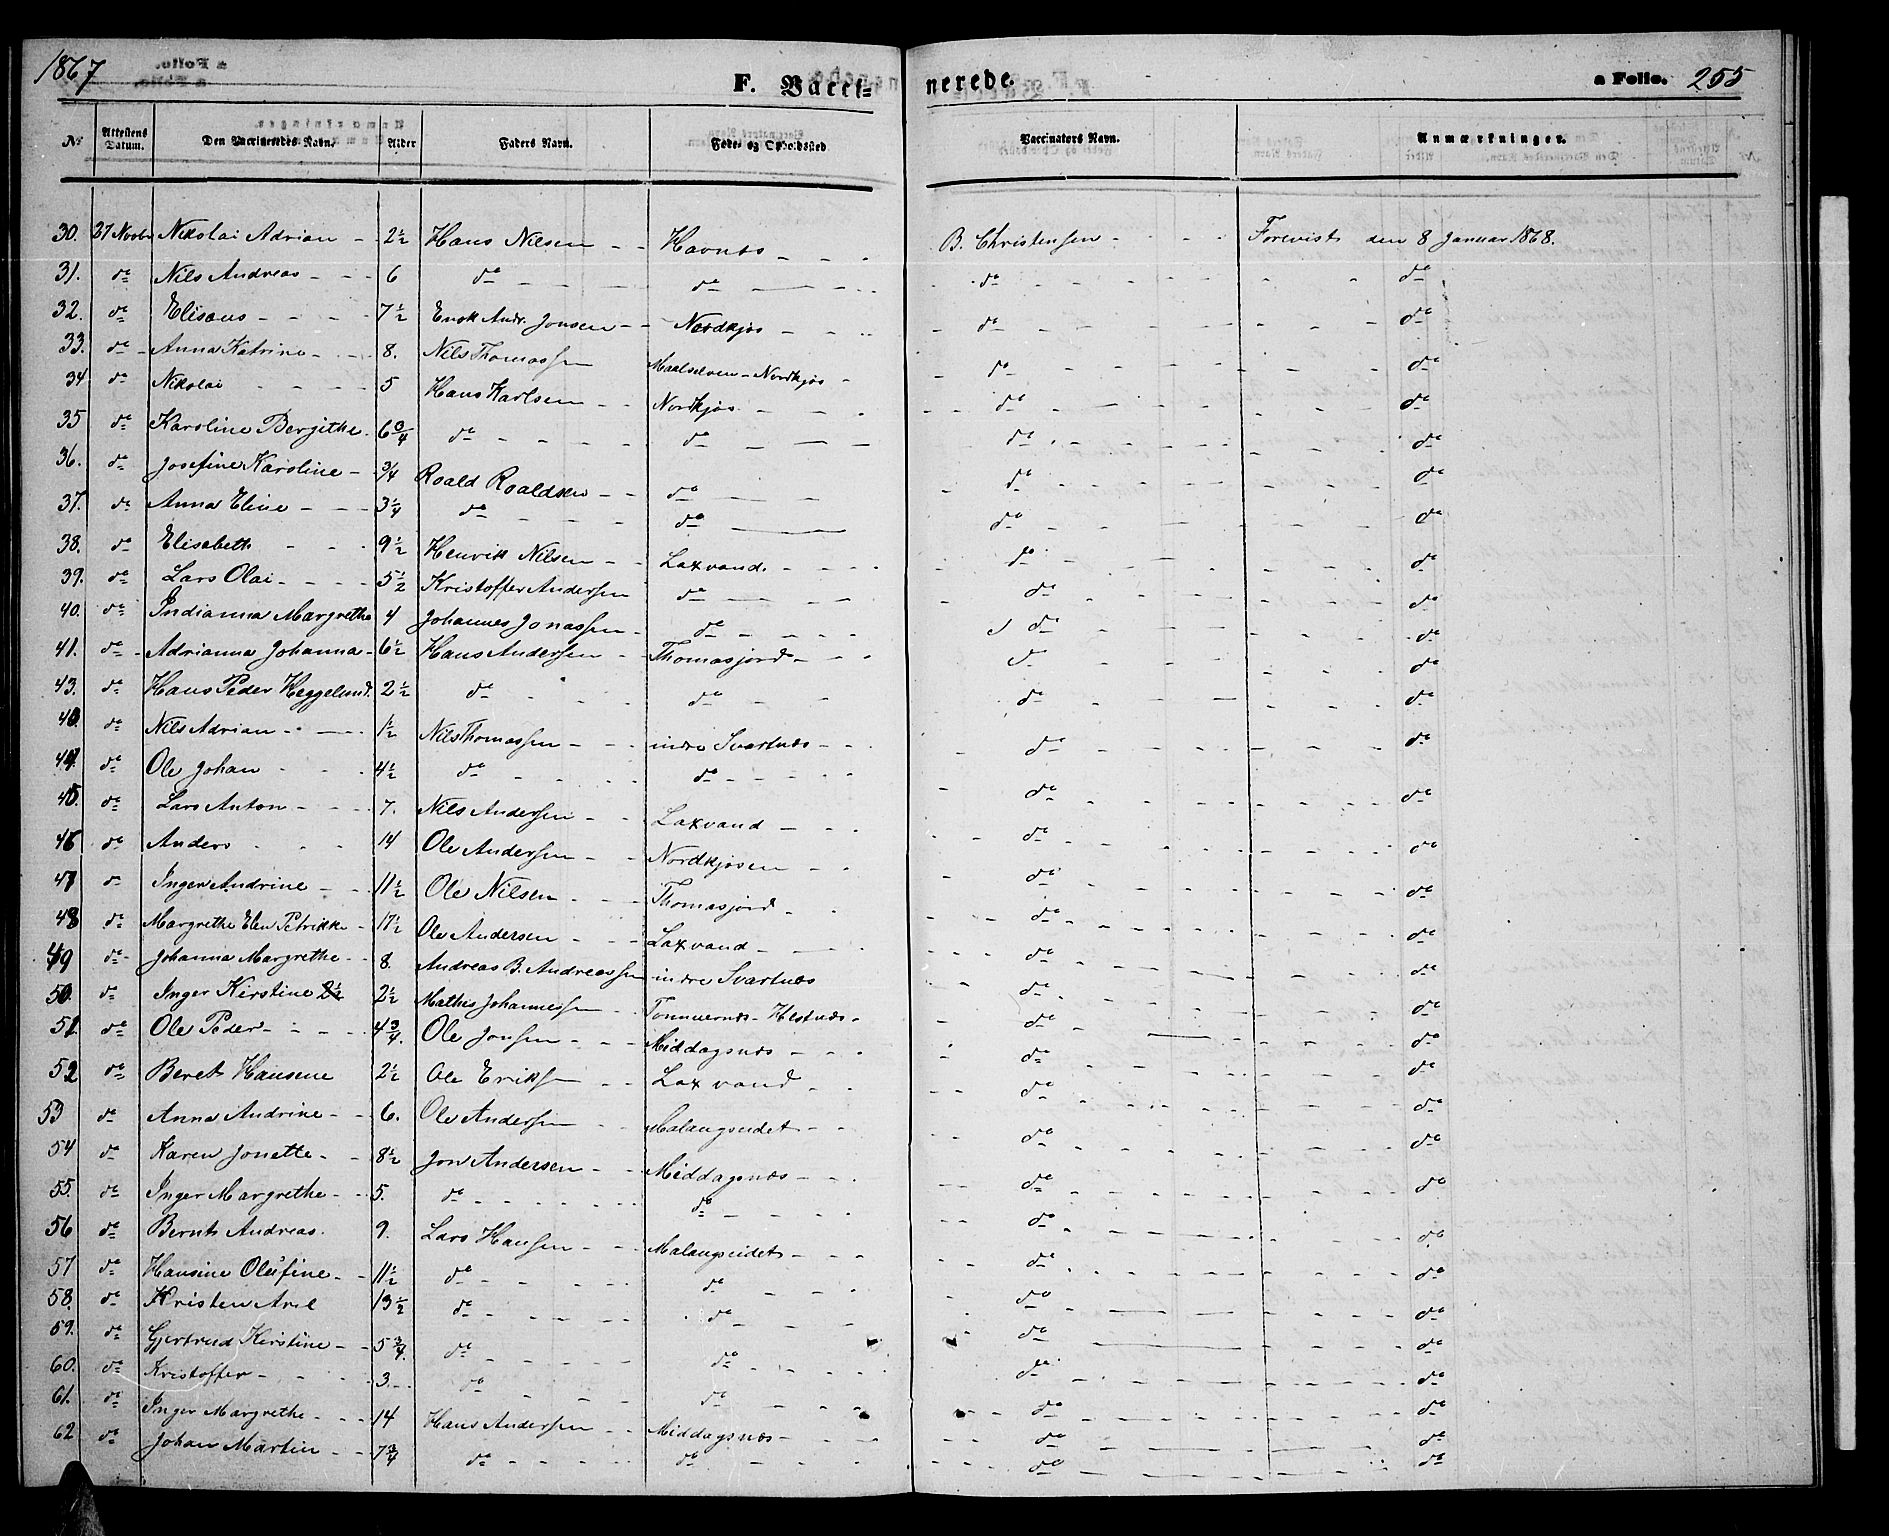 1867 F. Vacci- nerede. a Folio. 255
Nr. Attestens Datum. Den Vaccineredes Navn. Alder Faders Navn. Føde- og Opholdssted Vaccinators Navn. Anmærkninger.
30. 27 Novbr Nikolai Adrian - 2½ Hans Nilsen - - Havnæs - - - B. Christensen - - - - Forevist den 8 Januar 1868.
31. do Nils Andreas - - - 6 do do do do
32. do Elisæus - - - - 7½ Enok Andr. Jonsen - - Nordkjos - - - do do
33. do Anna Katrine - - - 8. Nils Thomassen Maalselven - Nordkjos - do do
34 do Nikolai - - - - 5 Hans Karlsen - - Nordkjos - - - do do
35 do Karoline Bergithe 6¾ do do do do
36. do Josefine Karoline - ¾ Roald Roaldsen - - do do do
37. do Anna Eline - - - 3¼ do do do do
38. do Elisabeth - - - 9½ Henrik Nilsen - - Laxvand. - - - do do
39. do Lars Olai - - - - 5½ Kristoffer Andersen do do do
40. do Indianna Margrethe 4 Johannes Jonassen - do do do
41. do Adrianna Johanna - 6½ Hans Andersen - - Thomasjord - - - do do
43. do Hans Peder Heggelund. 2½ do do do do
43. do Nils Adrian - - - 1½ Nils Thomassen - - - indre Svartnæs - - - do do
44. do Ole Johan - - - 4½ do do do do
45. do Lars Anton - - - 7. Nils Andersen - - Laxvand - - - do do
46 do Anders - - - 14 Ole Andersen - - Nordkjosen - - do do
47 do Inger Andrine - - 11½ Ole Nilsen - - - Thomasjord - - do do
48 do Margrethe Elen Petrikke - 17½ Ole Andersen - - Laxvand - - - do do
49 do Johanna Margrethe - - 8. Andreas B. Andreassen indre Svartnæs do do
50. do Inger Kirstine 2½ 2½ Mathis Johannessen - - Tømmernæs - Hestnæs - do do
51. do Ole Peder - - - - 4¾. Ole Jonsen - - - Middagsnæs - - - do do
52 do Beret Hansene 2½ Ole Eriksen - - Laxvand - - do do
53 do Anna Andrine - - 6. Ole Andersen - - Malangseidet - - do do
54 do Karen Jonette - - 8½ Jon Andersen - - Middagsnæs - - - do do
55. do Inger Margrethe - - 5. do do do do
56 do Bernt Andreas. 9. Lars Hansen - - - Malangseidet - - - do do
57 do Hansine Olufine - - 11½ do do do do
58. do Kristen Arel 13½ do do do do
59. do Gjertrud Kirstine - - 5¾. do do do do
60. do Kristoffer - - - 3. do do do do
61. do Inger Margrethe - - - 14 Hans Andersen - - Middagsnæs - - - do do
62 do Johan Martin - - 7¾ do do do do